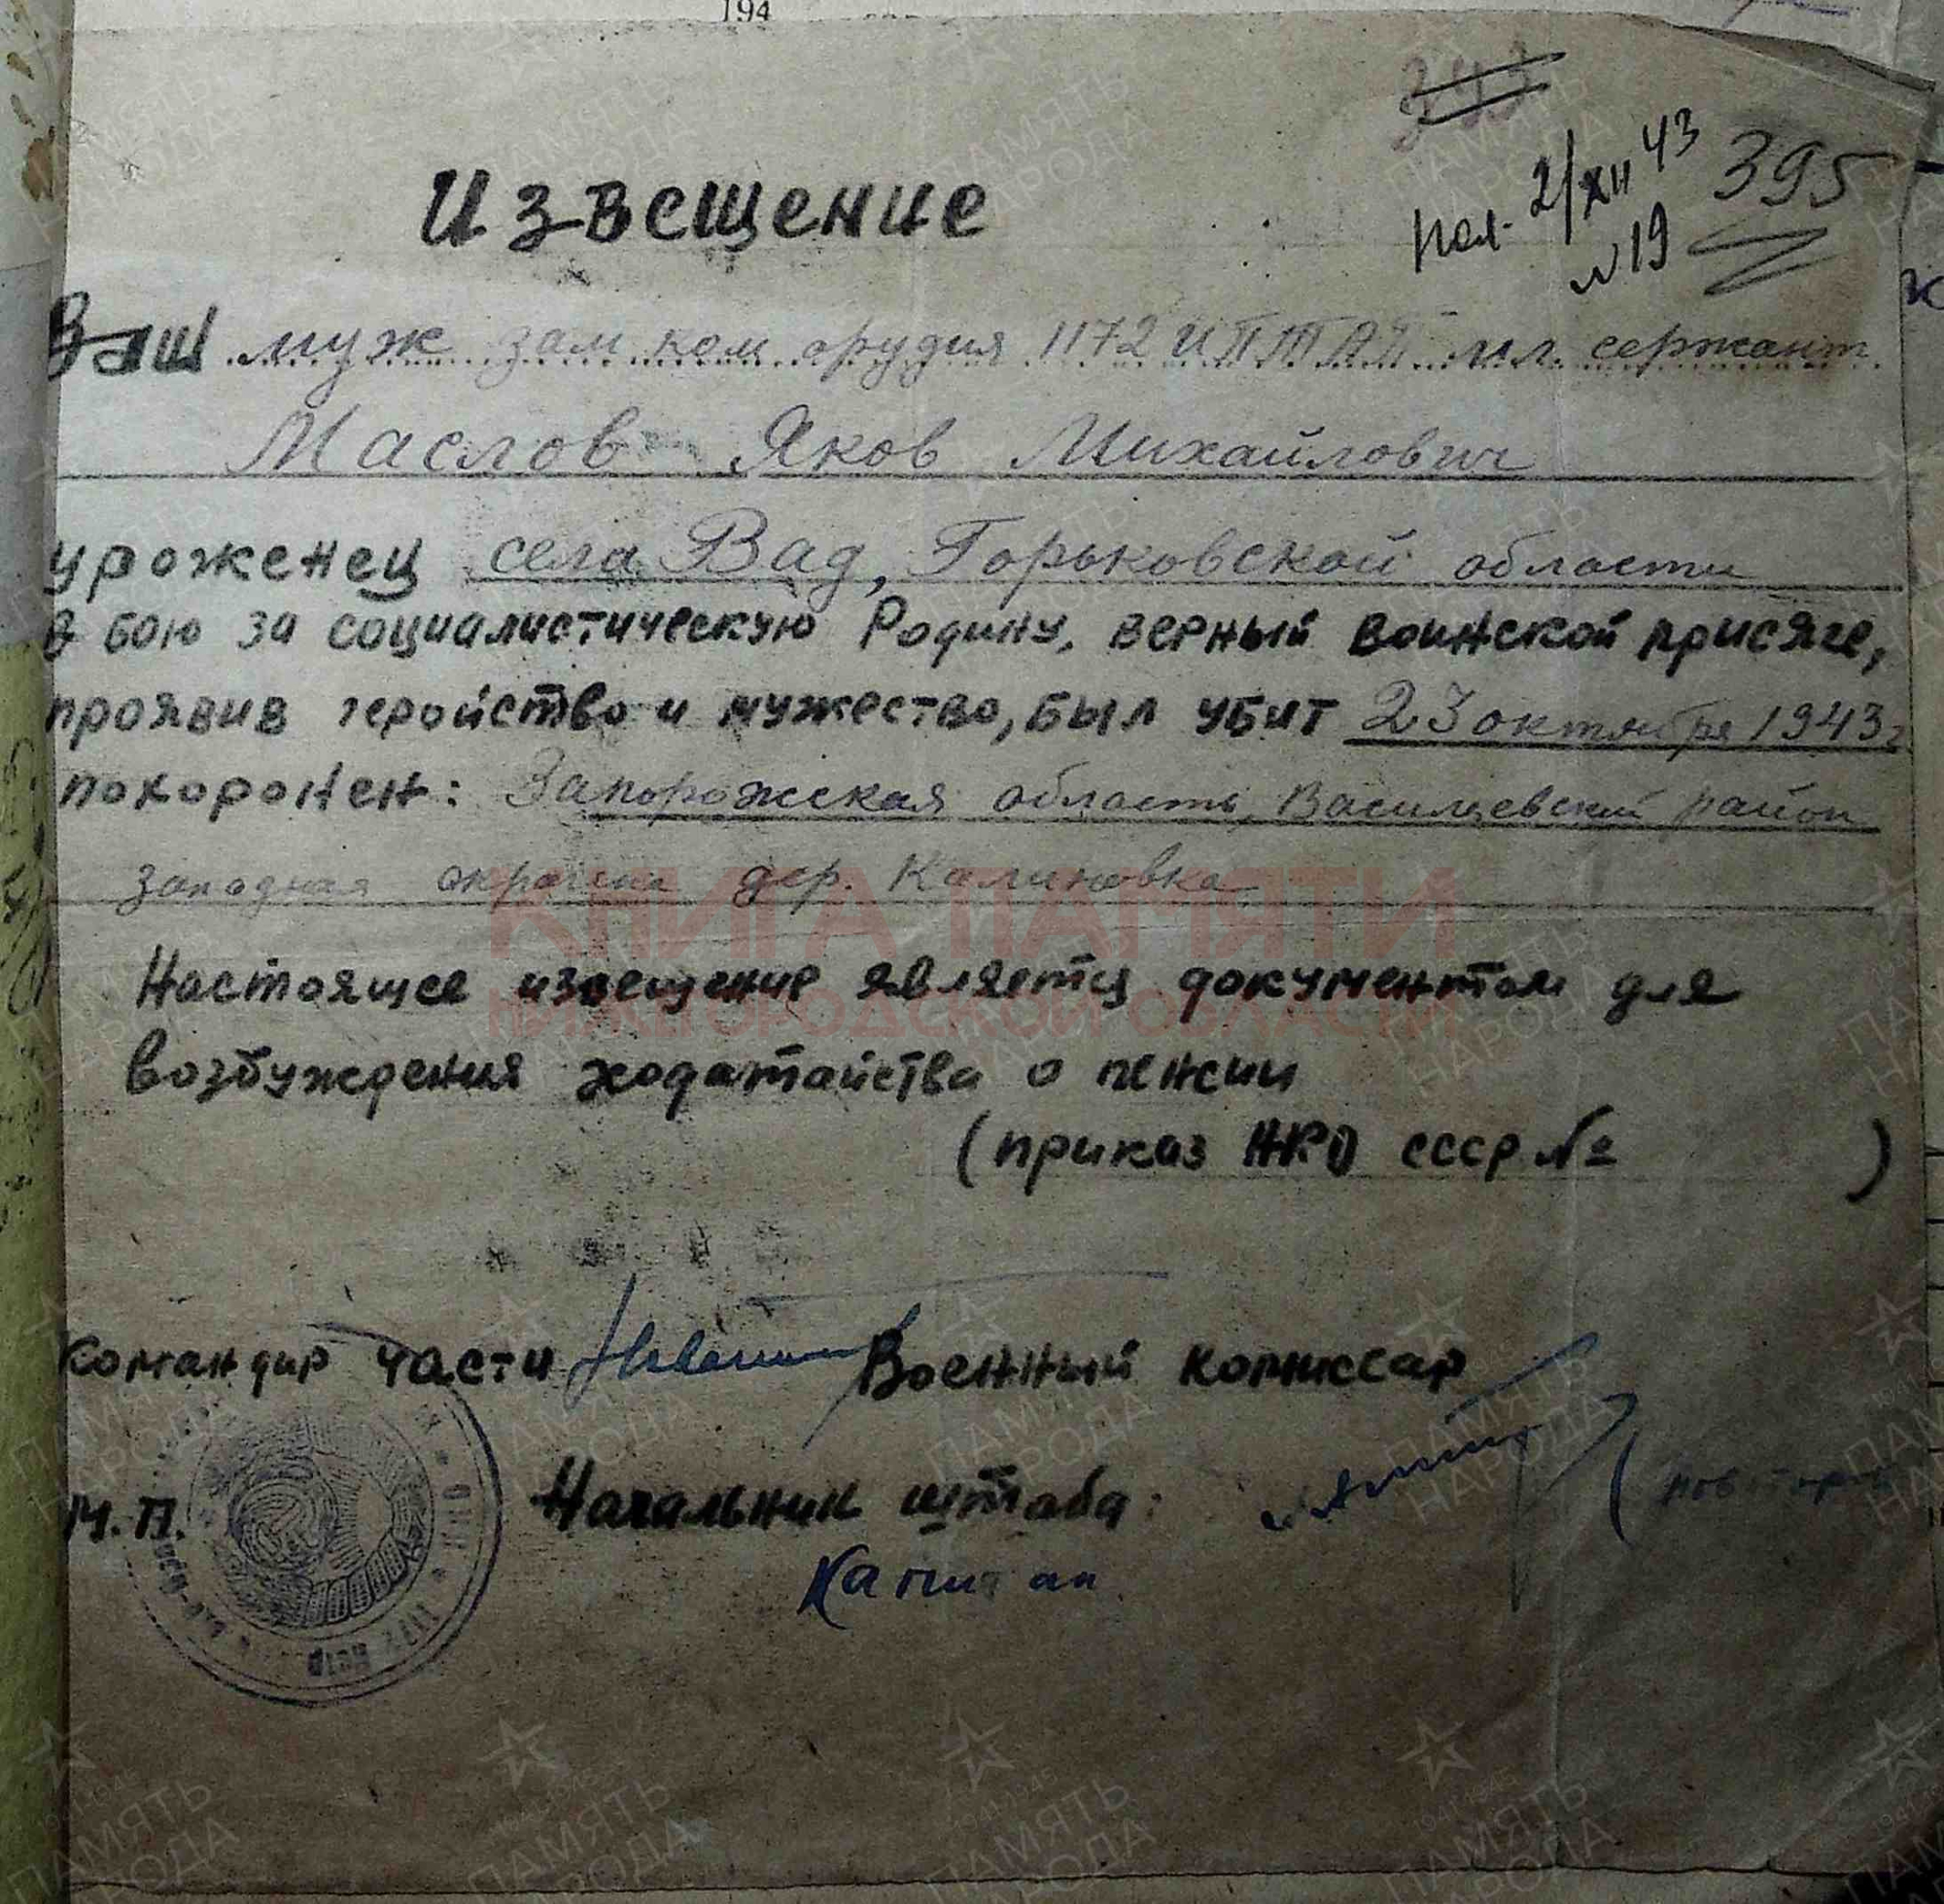 194
343
пол. 2/XII 43 395
№ 19
Извещение
Ваш муж зам ком орудия 1172 ИПТАП мл. сержант
Маслов Яков Михайлович
уроженец села Вад, Горьковской области
в бою за социалистическую Родину, верный воинской присяге,
проявив геройство и мужество, был убит 23 октября 1943 г
похоронен: Запорожская область, Василевский район
западная окраина дер. Калиновка
КНИГА ПАМЯТИ
НИЖЕГОРОДСКОЙ ОБЛАСТИ
Настоящее извещение является документом для
возбуждения ходатайства о пенсии
(приказ НКО СССР № )
Командир части Военный комиссар
М.П. Начальник штаба:
Капитан
ПАМЯТЬ НАРОДА
1941-1945